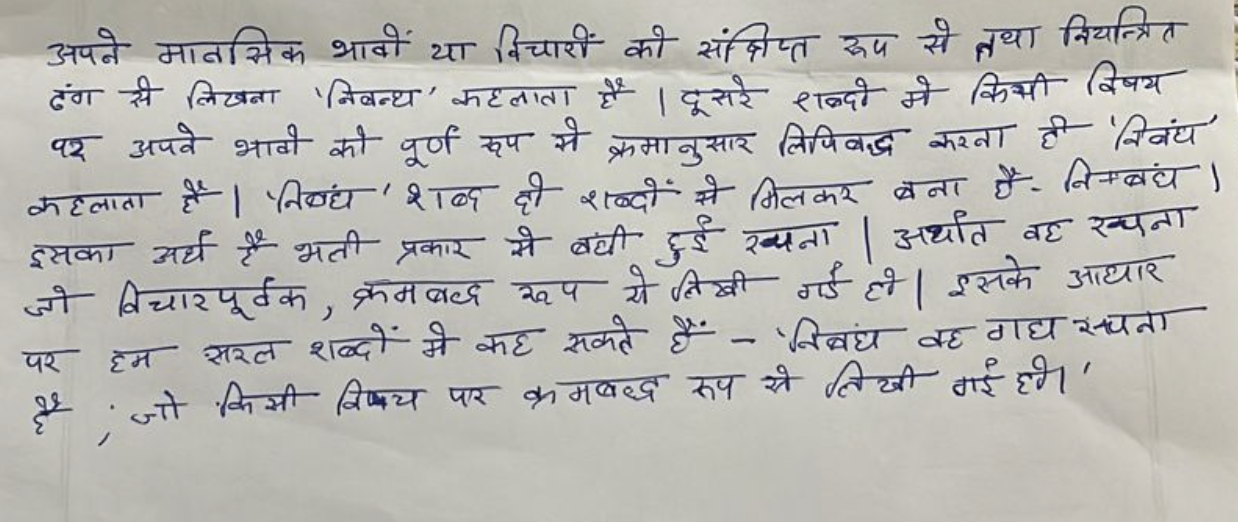 अपने मानसिक भावों या विचारों को संक्षिप्त रूप से तथा नियन्त्रित
ढंग से लिखना 'निबन्ध' कहलाता है | दूसरे शब्दो मे किसी विषय
पर अपने भावो को पूर्ण रूप से क्रमानुसार लिपिबद्ध करना ही 'निबंध'
कहलाता है | 'निबंध' शब्द दो शब्दों से मिलकर बना है - नि+बंध |
इसका अर्थ है भली प्रकार से बंधी हुई रचना | अर्थात वह रचना
जो विचारपूर्वक, क्रमबद्ध रूप से लिखी गई हो | इसके आधार
पर हम सरल शब्दों मे कह सकते हैं – 'निबंध वह गद्य रचना
है , जो किसी विषय पर क्रमबद्ध रूप से लिखी गई हो।'